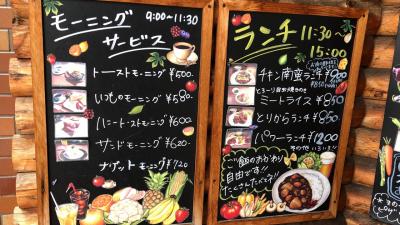 モーニング
サービス
9:00〜11:30
トーストモーニング ¥500.
いつものモーニング ¥580.
ハニートーストモーニング ¥600.
サンドモーニング ¥620.
ナゲットモーニング ¥720
ランチ 11:30
〜
15:00
チキン南蛮ランチ ¥900
とろーり
ミートライス ¥850
とりからランチ ¥850
パワーランチ ¥1200
その他いろいろ!!
ご飯のおかわり
自由です!!
たくさんたべてネ!